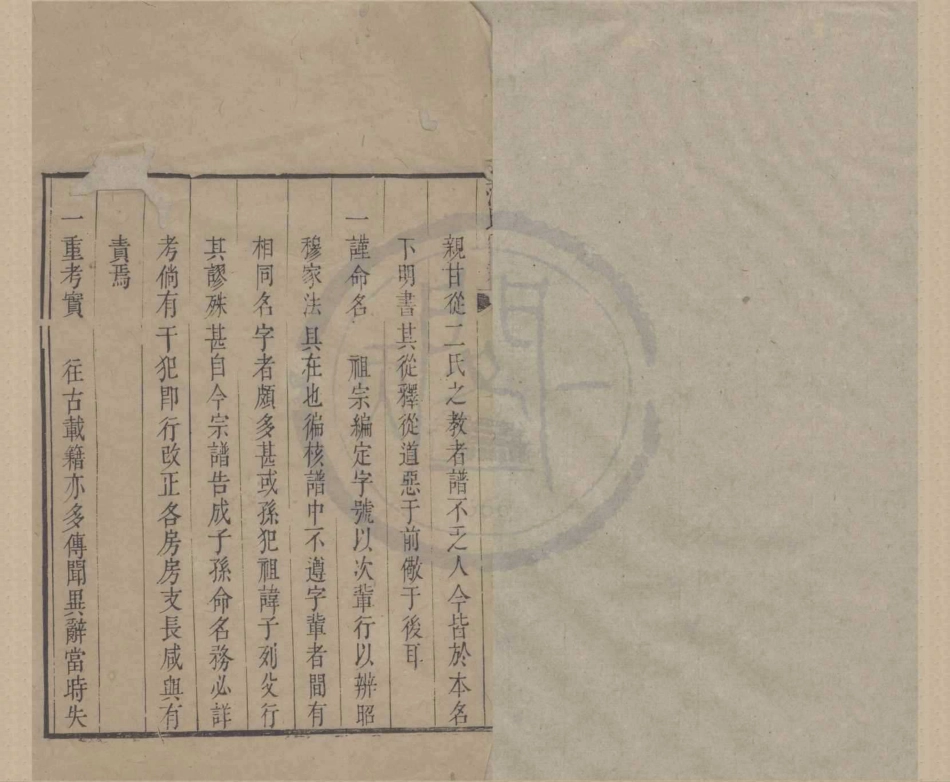 親甘從二氏之教者譜不乏人今皆於本名
下明書其從釋從道惡于前儆于後耳
一謹命名　祖宗編定字號以次輩行以辨昭
穆家法具在也徧核譜中不遵字輩者間有
相同名字者頗多甚或孫犯祖諱子列父行
其謬殊甚自今宗譜告成子孫命名務必詳
考倘有干犯卽行改正各房房支長咸與有
責焉
一重考實　往古載籍亦多傳聞異辭當時失